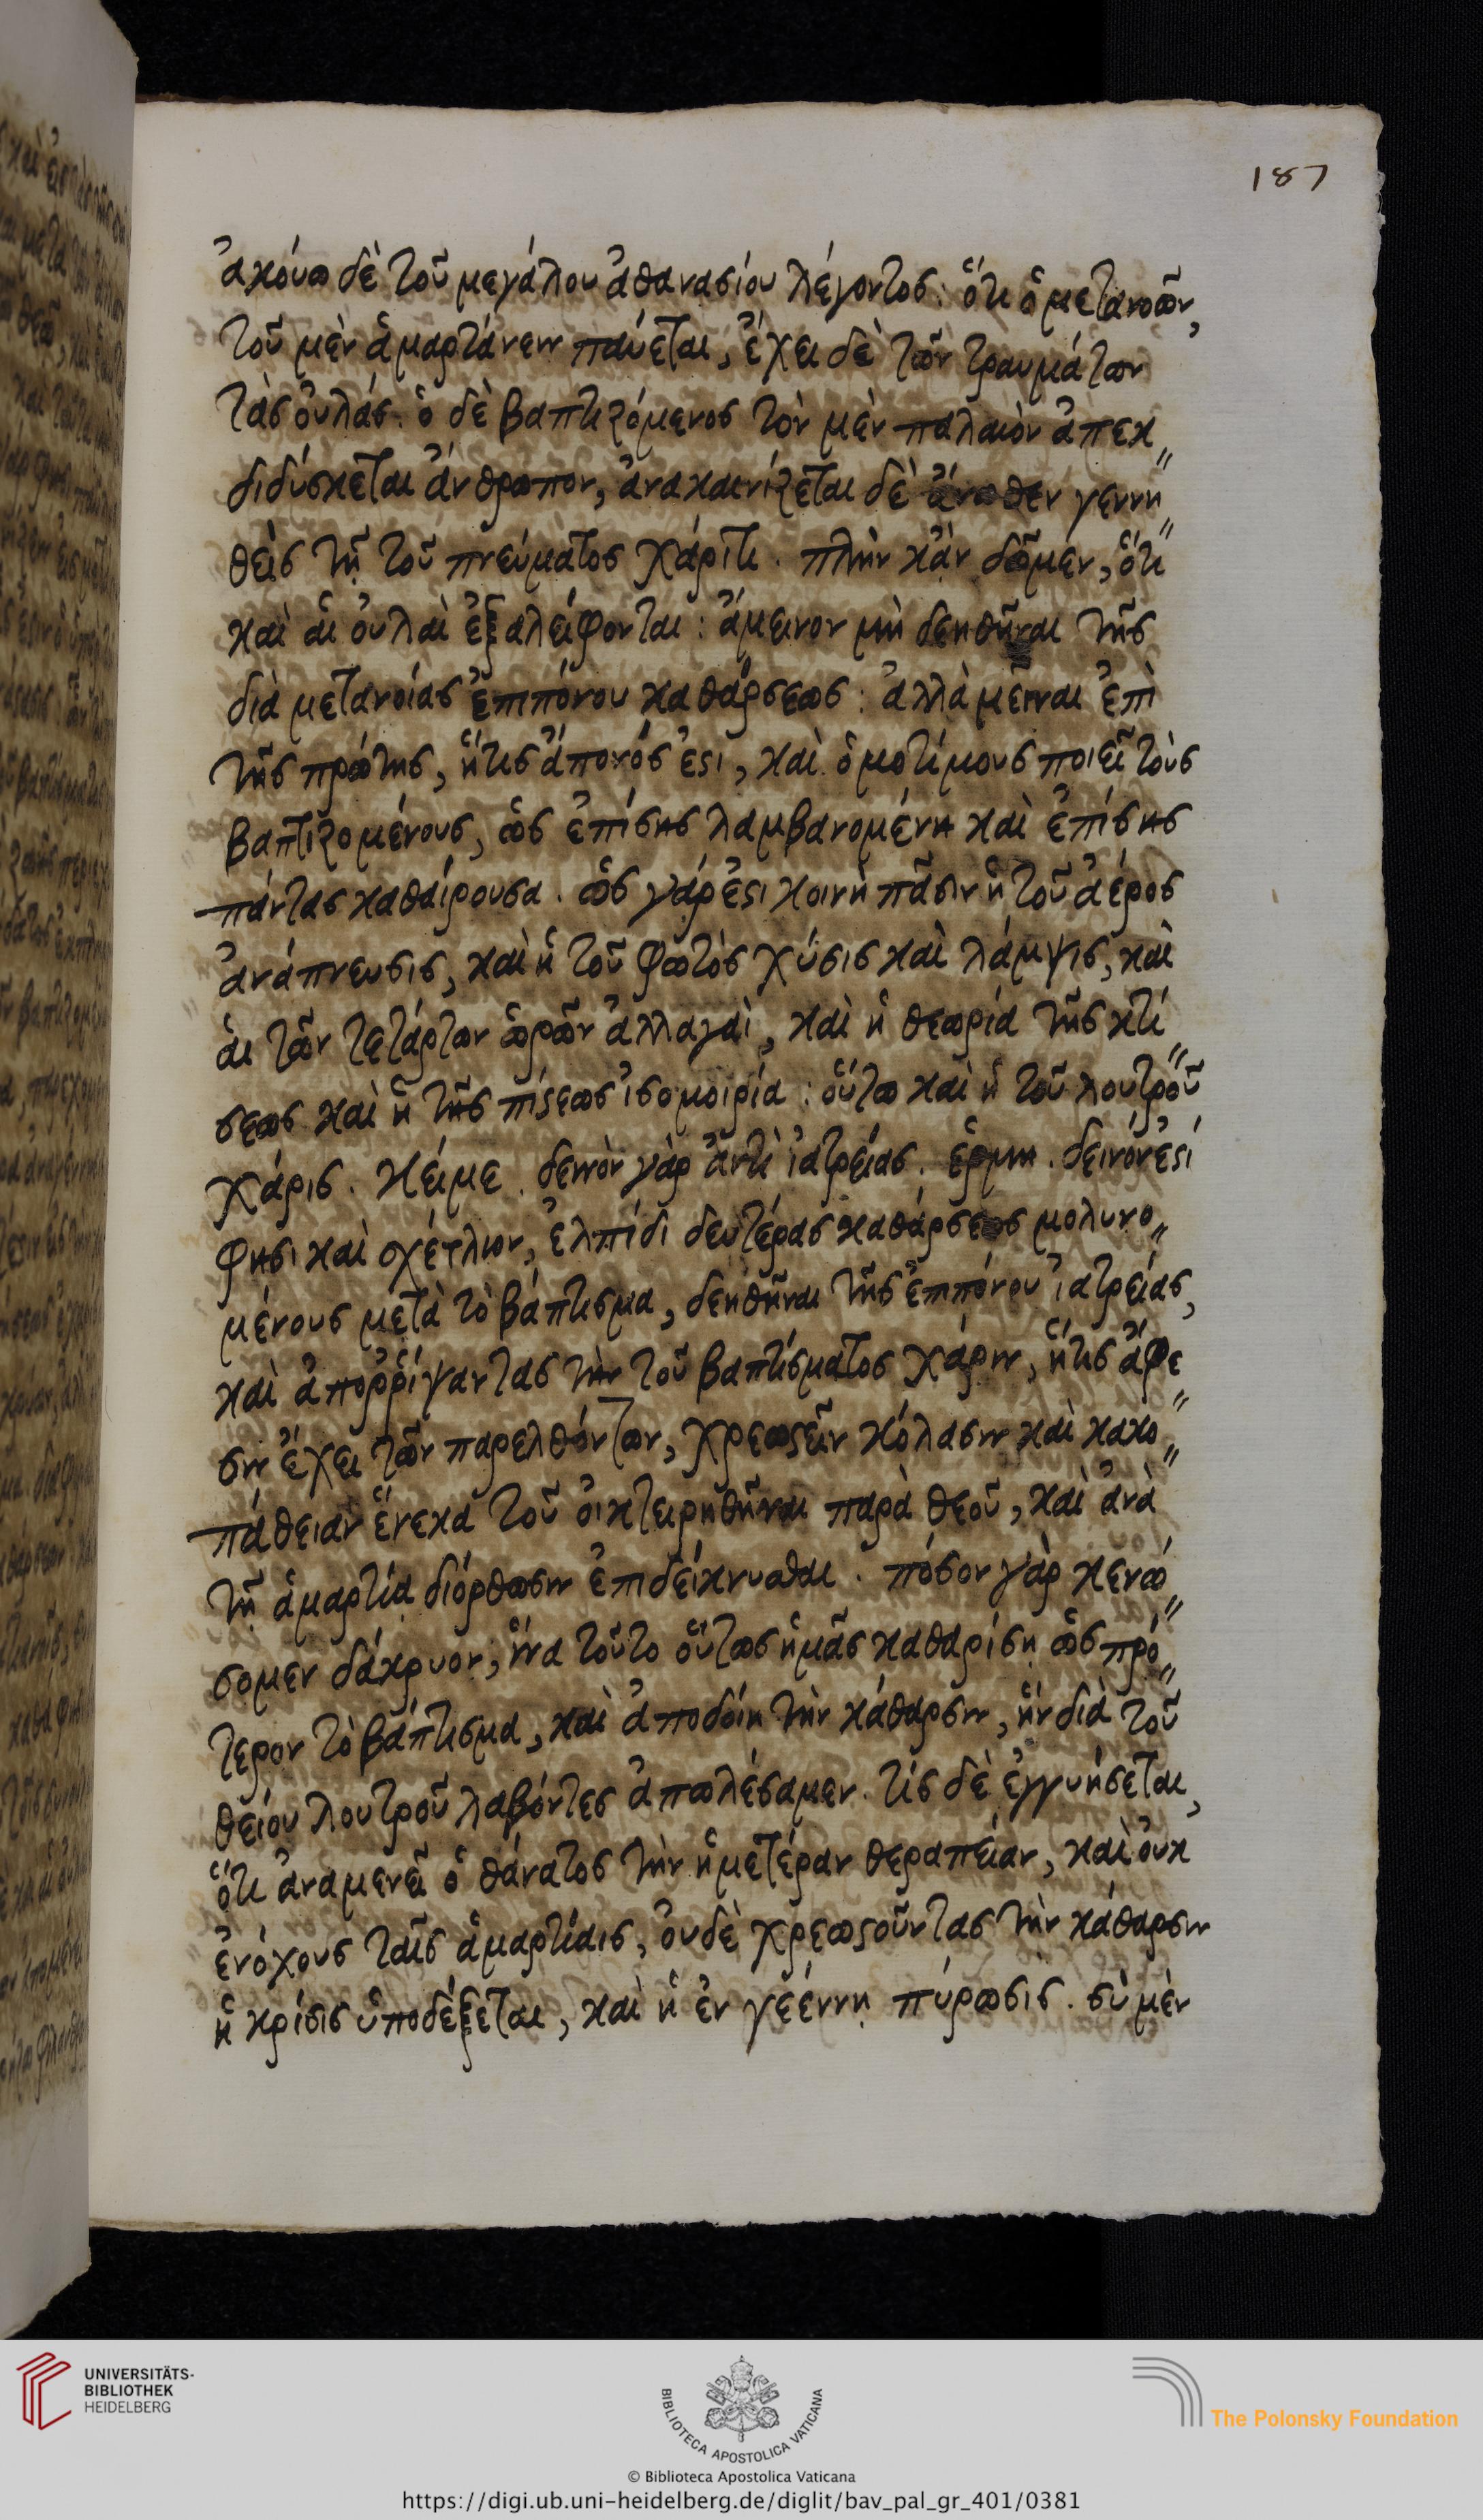 187
ἀκούω δὲ τοῦ μεγάλου ἀθανασίου λέγοντος: ὅτι ὁ μετανοῶν,
τοῦ μὲν ἁμαρτάνειν παύεται, ἔχει δὲ τῶν τραυμάτων
τὰς οὐλάς. ὁ δὲ βαπτιζόμενος τὸν μὲν παλαιὸν ἀπεκ〃
διδύσκεται ἄνθρωπον, ἀνακαινίζεται δὲ ἄνωθεν γεννη〃
θεὶς τῇ τοῦ πνεύματος χάριτι. πλὴν κἂν δῶμεν, ὅτι
καὶ αἱ οὐλαὶ ἐξαλείφονται: ἄμεινον μὴ δεηθῆναι τῆς
διὰ μετανοίας ἐπιπόνου καθάρσεως: ἀλλὰ μεῖναι ἐπὶ
τῆς πρώτης, ἥτις ἄπονός ἐστι, καὶ ὁμοτίμους ποιεῖ τοὺς
βαπτιζομένους, ὡς ἐπίσης λαμβανομένη καὶ ἐπίσης
πάντας καθαίρουσα. ὡς γάρ ἐστι κοινὴ πᾶσιν ἡ τοῦ ἀέρος
ἀνάπνευσις, καὶ ἡ τοῦ φωτὸς χύσις καὶ λάμψις, καὶ
αἱ τῶν τετάρτων ὡρῶν ἀλλαγαὶ, καὶ ἡ θεωρία τῆς κτί〃
σεως καὶ ἡ τῆς πίστεως ἰσομοιρία: οὕτω καὶ ἡ τοῦ λουτροῦ
χάρις. Κείμε. δεινὸν γὰρ ἀντὶ ἰατρείας. ἑρμη. δεινόν ἐστί
φησι καὶ σχέτλιον, ἐλπίδι δευτέρας καθάρσεως μολυνο〃
μένους μετὰ τὸ βάπτισμα, δεηθῆναι τῆς ἐπιπόνου ἰατρείας,
καὶ ἀποῤῥίψαντας τὴν τοῦ βαπτίσματος χάριν, ἥτις ἄφε〃
σιν ἔχει τῶν παρελθόντων, χρεωστεῖν κόλασιν καὶ κακο〃
πάθειαν ἕνεκα τοῦ οἰκτειρηθῆναι παρὰ θεοῦ, καὶ ἀνὰ
τῇ ἁμαρτίᾳ διόρθωσιν ἐπιδείκνυσθαι. πόσον γὰρ κενώ〃
σομεν δάκρυον, ἵνα τοῦτο οὕτως ἡμᾶς καθαρίσῃ ὡς πρό〃
τερον τὸ βάπτισμα, καὶ ἀποδοίη τὴν κάθαρσιν, ἣν διὰ τοῦ
θείου λουτροῦ λαβόντες ἀπωλέσαμεν. τίς δὲ ἐγγυήσεται,
ὅτι ἀναμενεῖ ὁ θάνατος τὴν ἡμετέραν θεραπείαν, καὶ οὐκ
ἐνόχους ταῖς ἁμαρτίαις, οὐδὲ χρεωστοῦντας τὴν κάθαρσιν
ἡ κρίσις ὑποδέξεται, καὶ ἡ ἐν γεέννῃ πύρωσις. σὺ μὲν
UNIVERSITÄTS-
BIBLIOTHEK
HEIDELBERG
BIBLIOTECA APOSTOLICA VATICANA
The Polonsky Foundation
© Biblioteca Apostolica Vaticana
https://digi.ub.uni-heidelberg.de/diglit/bav_pal_gr_401/0381